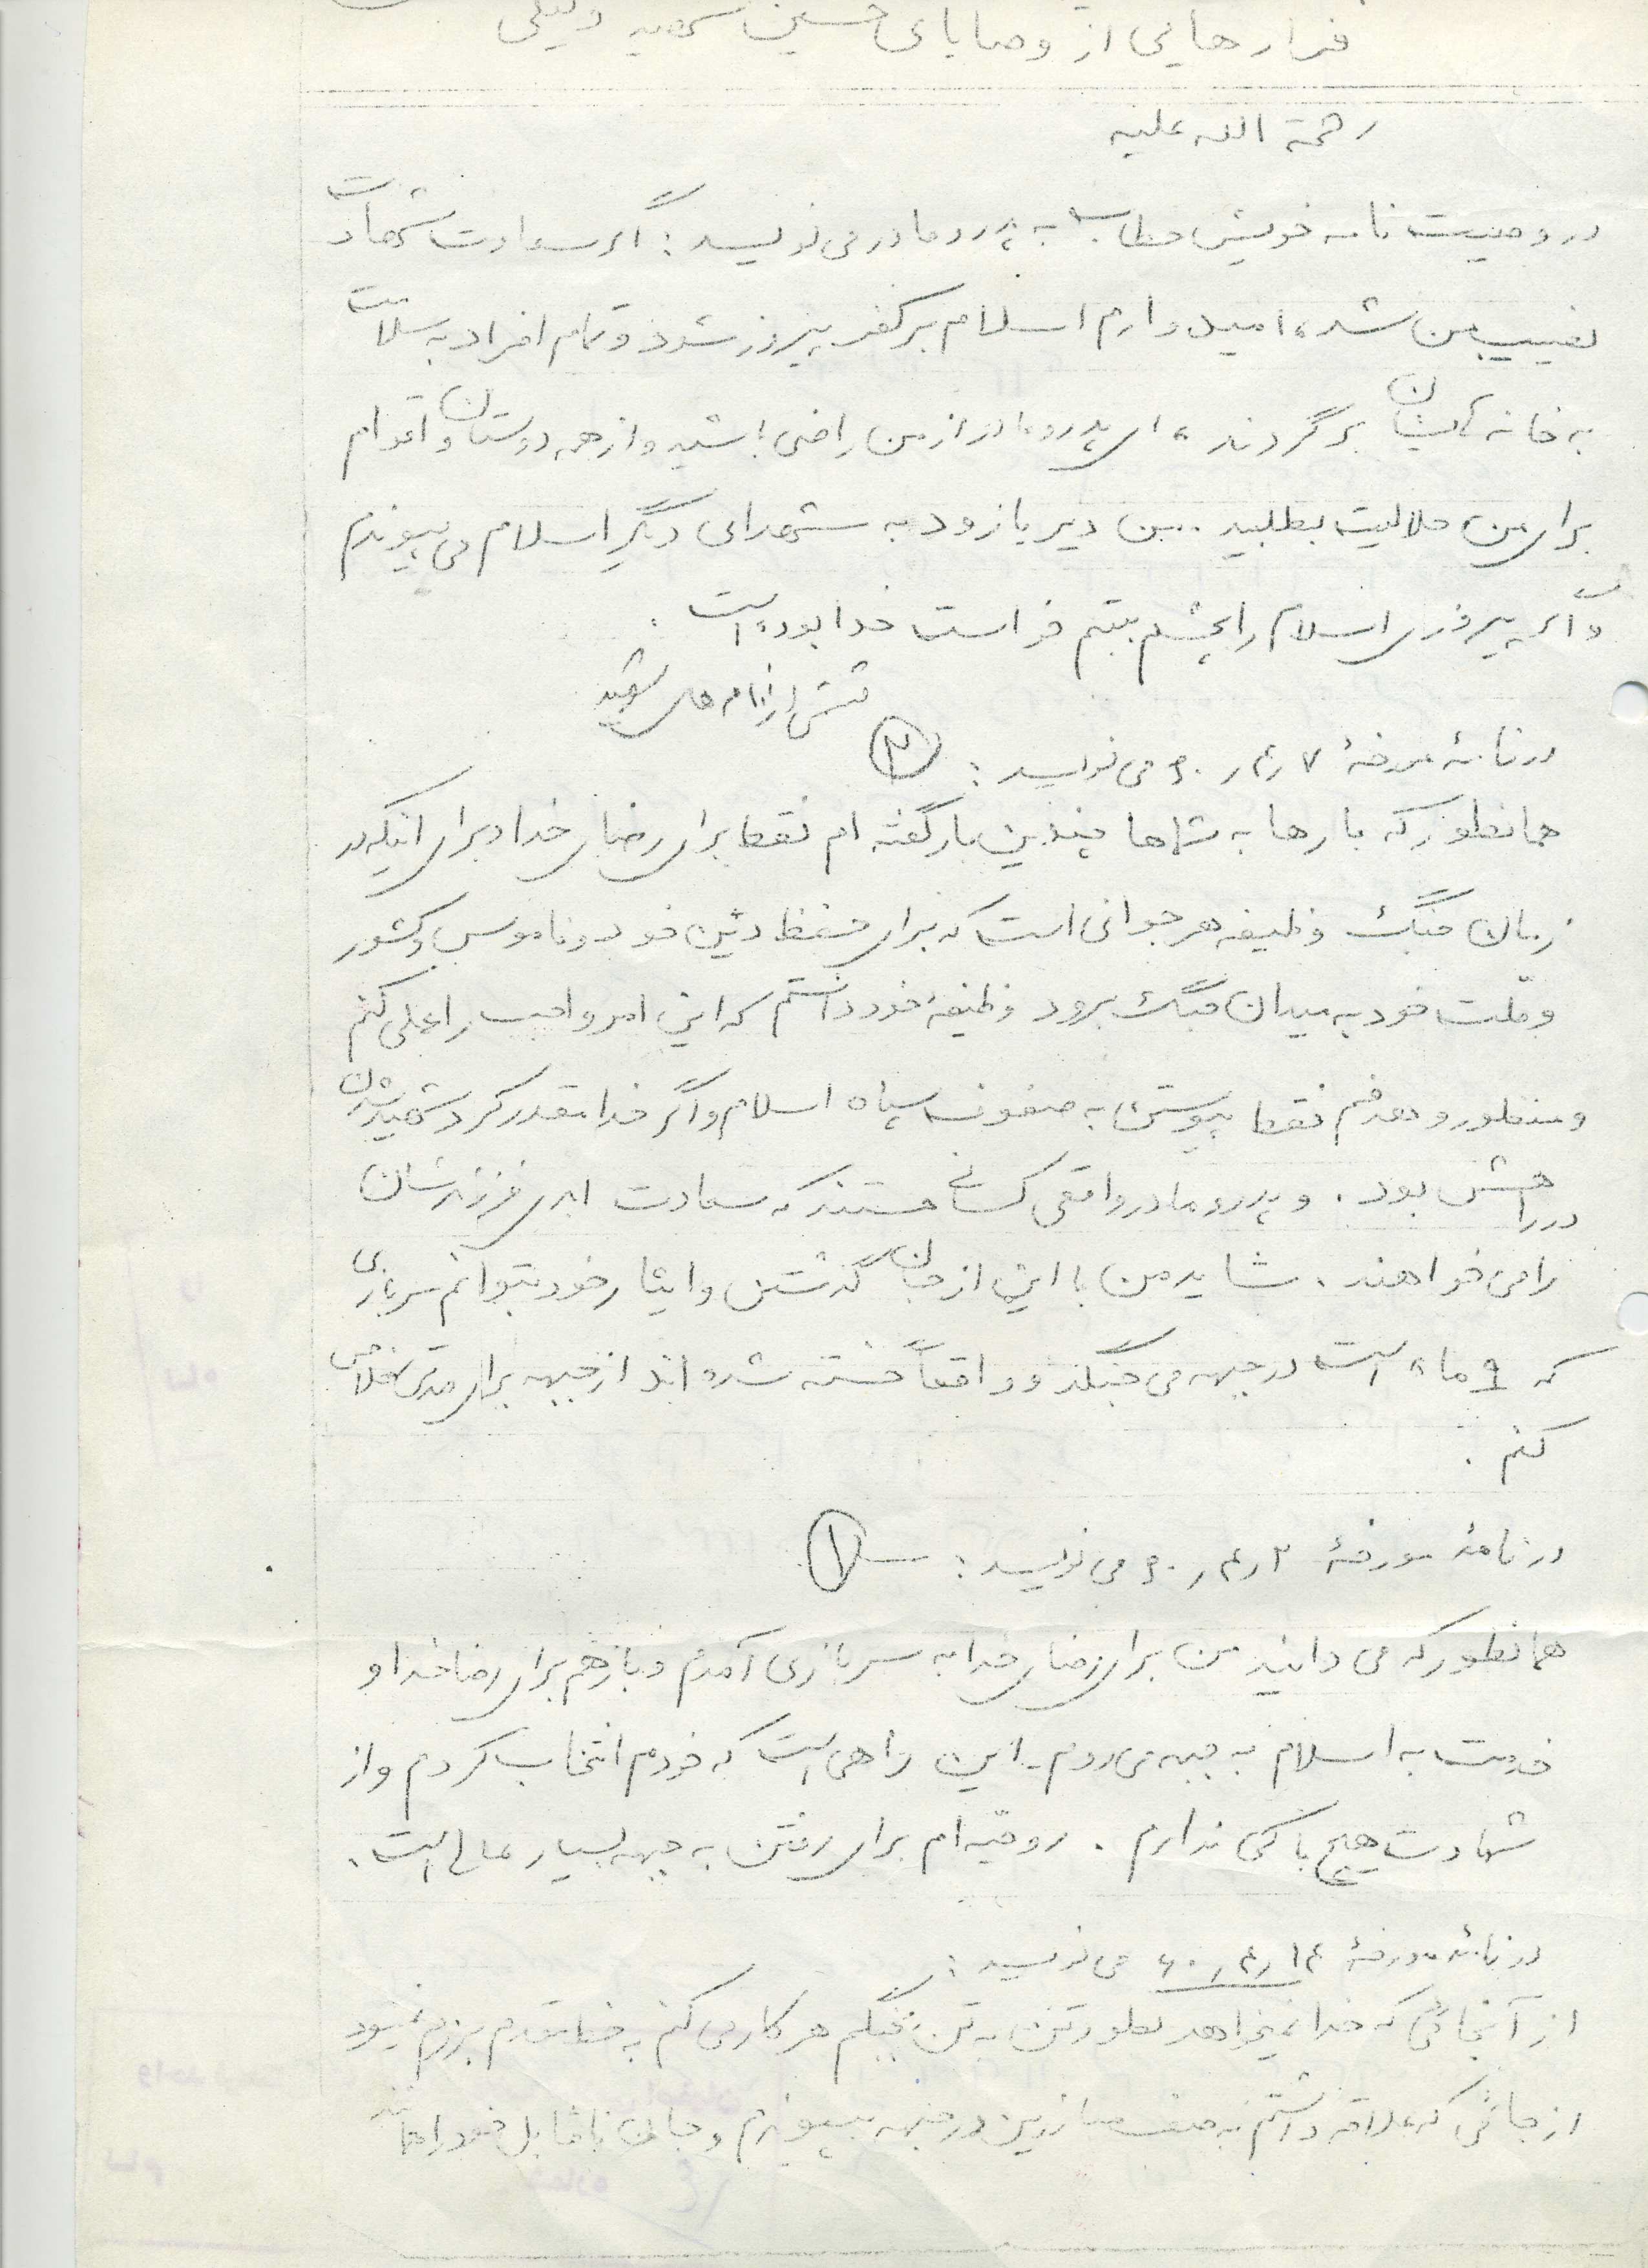 فرازهایی از وصایای حسین سعید
رحمة الله علیه
در وصیت نامه خویش خطاب به پدر و مادر می نویسد : اگر سعادت شهادت
نصیب من شد ، امید وارم اسلام بر کفر پیروز شود و تمام افراد به سلامت
به خانه هایشان برگردند ، ای پدر و مادر از من راضی باشید و از همه دوستان و اقوام
برای من حلالیت بطلبید . من دیر یا زود به شهدای دیگر اسلام می پیوندم
و اگر پیروزی اسلام را بچشم ببینم خواست خدا بوده است .
قسمتی از نامه های شهید
در نامهٔ مورخهٔ ۷ ر ۴ ر ۶۰ می نویسد : ۲
همانطور که بارها به شماها چندین بار گفته ام فقط برای رضای خدا و برای اینکه در
زمان جنگ وظیفه هر جوانی است که برای حفظ دین خود و ناموس و کشور
و ملّت خود به میدان جنگ برود وظیفهٔ خود دانستم که این امر واجب را عملی کنم
و منظور و هدفم فقط پیوستن به صفوف سپاه اسلام و اگر خدا مقدر کرد شهید شدن
در راهش بود . و پدر و مادر واقعی کسانی هستند که سعادت ابدی فرزندشان
را می خواهند . شاید من با این از جان گذشتن و ایثار خود بتوانم سربازی
که ۹ ماه است در جبهه می جنگد و واقعاً خسته شده اند از جبهه برای مدتی خلاص
کنم .
در نامهٔ مورخهٔ ۲ ر ۴ ر ۶۰ می نویسد : ۱
همانطور که می دانید من برای رضای خدا به سربازی آمدم و باز هم برای رضا خدا و
خدمت به اسلام به جبهه می روم . این راهی است که خودم انتخاب کردم و از
شهادت هیچ باکی ندارم . روحیّه ام برای رفتن به جبهه بسیار عالی است .
در نامهٔ مورخهٔ ۱۴ ر ۴ ر ۶۰ می نویسد :
از آنجائی که خدا نمیخواهد بطور تن به تن بجنگم هر کار می کنم به خط مقدم بروم نمیشود
از جائی که علاقه داشتم به صف مبارزین در جبهه بپیوندم و جان ناقابل خود را